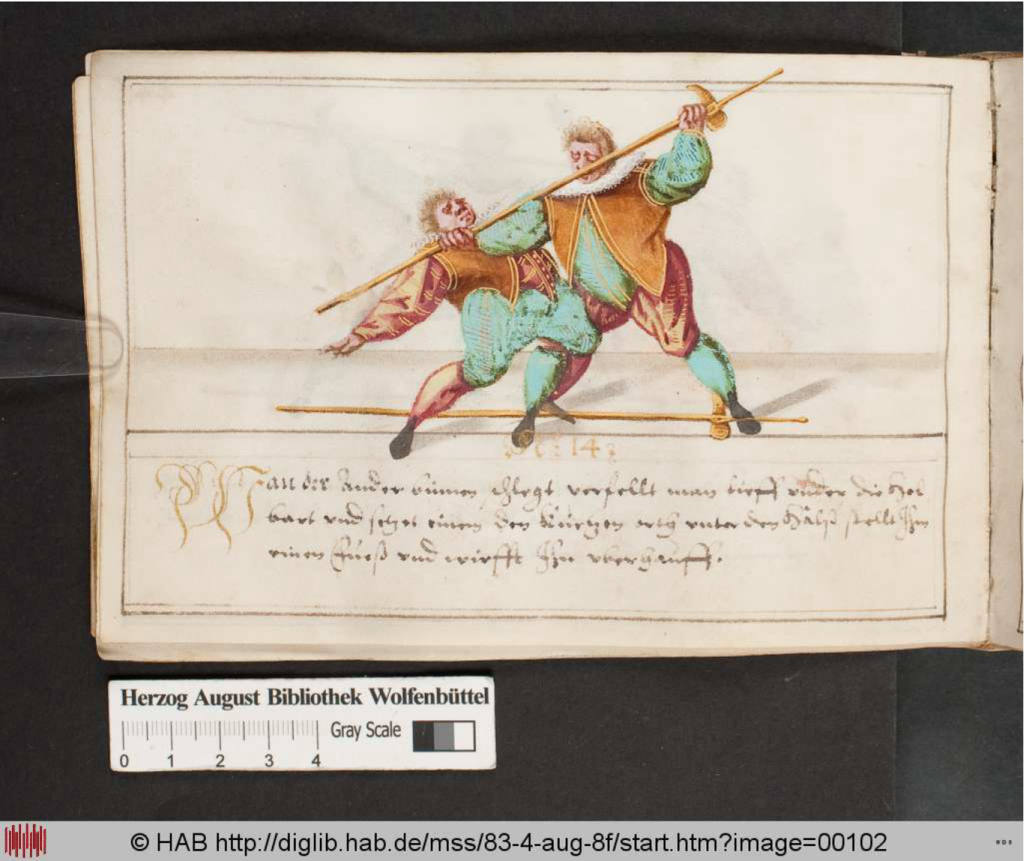 N: 14:
Wan der Ander binnen schlegt verfellt man tieff under die Hel
bart und setzet einem den kurtzen orth unter den Halß stellt Ihm
einen Fueß und wirfft Ihn uberhauff.
Herzog August Bibliothek Wolfenbüttel
Gray Scale
0 1 2 3 4
© HAB http://diglib.hab.de/mss/83-4-aug-8f/start.htm?image=00102